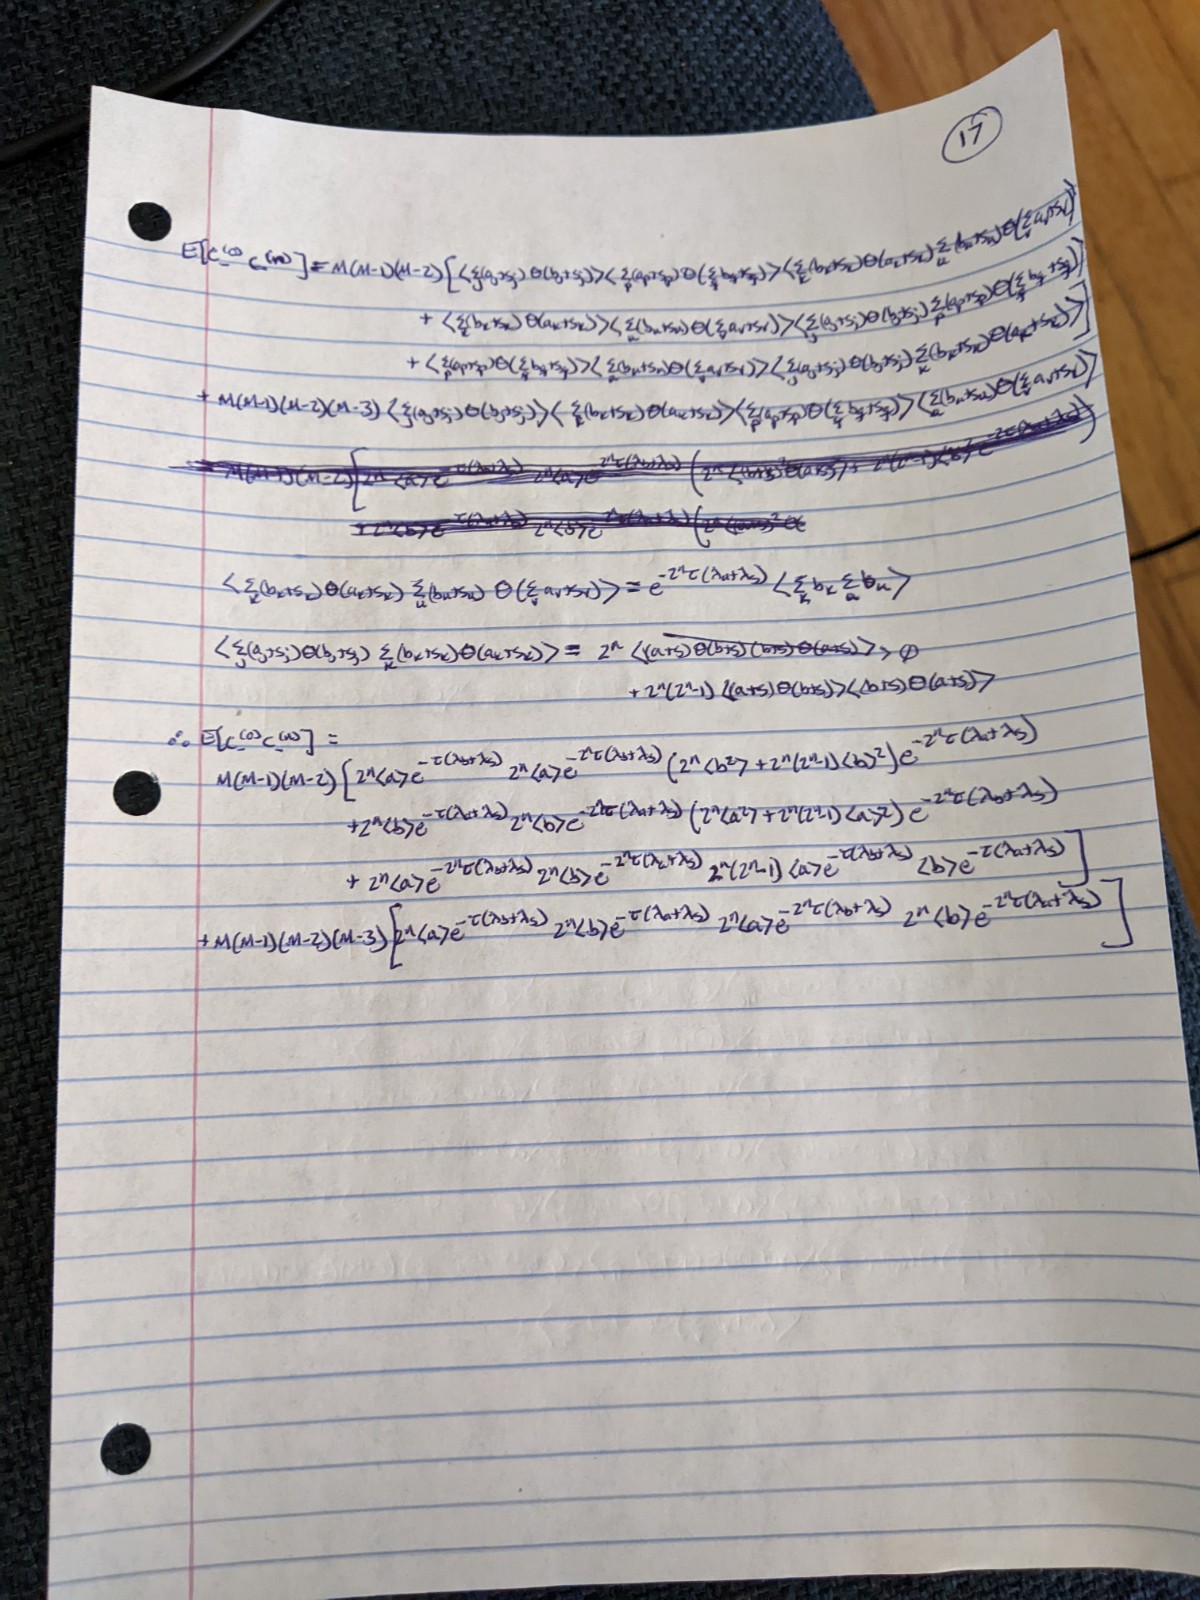 17
E[C₋⁽⁰⁾ C₋⁽ⁿ⁾] = M(M-1)(M-2)[<Σ_j(a_j+s_j)Θ(b_j+s_j)><Σ_p(a_p+s_p)Θ(Σ_q b_q+s_q)><Σ_k(b_k+s_k)Θ(a_k+s_k)Σ_u(b_u+s_u)Θ(Σ_v a_v+s_v)>
+ <Σ_k(b_k+s_k)Θ(a_k+s_k)><Σ_u(b_u+s_u)Θ(Σ_v a_v+s_v)><Σ_j(a_j+s_j)Θ(b_j+s_j)Σ_p(a_p+s_p)Θ(Σ_q b_q+s_q)>
+ <Σ_p(a_p+s_p)Θ(Σ_q b_q+s_q)><Σ_u(b_u+s_u)Θ(Σ_v a_v+s_v)><Σ_j(a_j+s_j)Θ(b_j+s_j)Σ_k(b_k+s_k)Θ(a_k+s_k)>]
+ M(M-1)(M-2)(M-3)<Σ_j(a_j+s_j)Θ(b_j+s_j)><Σ_k(b_k+s_k)Θ(a_k+s_k)><Σ_p(a_p+s_p)Θ(Σ_q b_q+s_q)><Σ_u(b_u+s_u)Θ(Σ_v a_v+s_v)>
<Σ_k(b_k+s_k)Θ(a_k+s_k)Σ_u(b_u+s_u)Θ(Σ_v a_v+s_v)> = e^{-2ⁿτ(λ_a+λ_s)} <Σ_k b_k Σ_u b_u>
<Σ_j(a_j+s_j)Θ(b_j+s_j)Σ_k(b_k+s_k)Θ(a_k+s_k)> = 2ⁿ<(a+s)Θ(b+s)(b+s)Θ(a+s)>→0
+ 2ⁿ(2ⁿ-1)<(a+s)Θ(b+s)><(b+s)Θ(a+s)>
∴ E[C₋⁽⁰⁾C₋⁽ⁿ⁾] =
M(M-1)(M-2)[2ⁿ<a>e^{-τ(λ_b+λ_s)} 2ⁿ<a>e^{-2ⁿτ(λ_b+λ_s)} (2ⁿ<b²>+2ⁿ(2ⁿ-1)<b>²)e^{-2ⁿτ(λ_a+λ_s)}
+2ⁿ<b>e^{-τ(λ_a+λ_s)} 2ⁿ<b>e^{-2ⁿτ(λ_a+λ_s)} (2ⁿ<a²>+2ⁿ(2ⁿ-1)<a>²)e^{-2ⁿτ(λ_b+λ_s)}
+ 2ⁿ<a>e^{-2ⁿτ(λ_b+λ_s)} 2ⁿ<b>e^{-2ⁿτ(λ_a+λ_s)} 2ⁿ(2ⁿ-1)<a>e^{-τ(λ_b+λ_s)} <b>e^{-τ(λ_a+λ_s)}]
+M(M-1)(M-2)(M-3)[2ⁿ<a>e^{-τ(λ_b+λ_s)} 2ⁿ<b>e^{-τ(λ_a+λ_s)} 2ⁿ<a>e^{-2ⁿτ(λ_b+λ_s)} 2ⁿ<b>e^{-2ⁿτ(λ_a+λ_s)}]